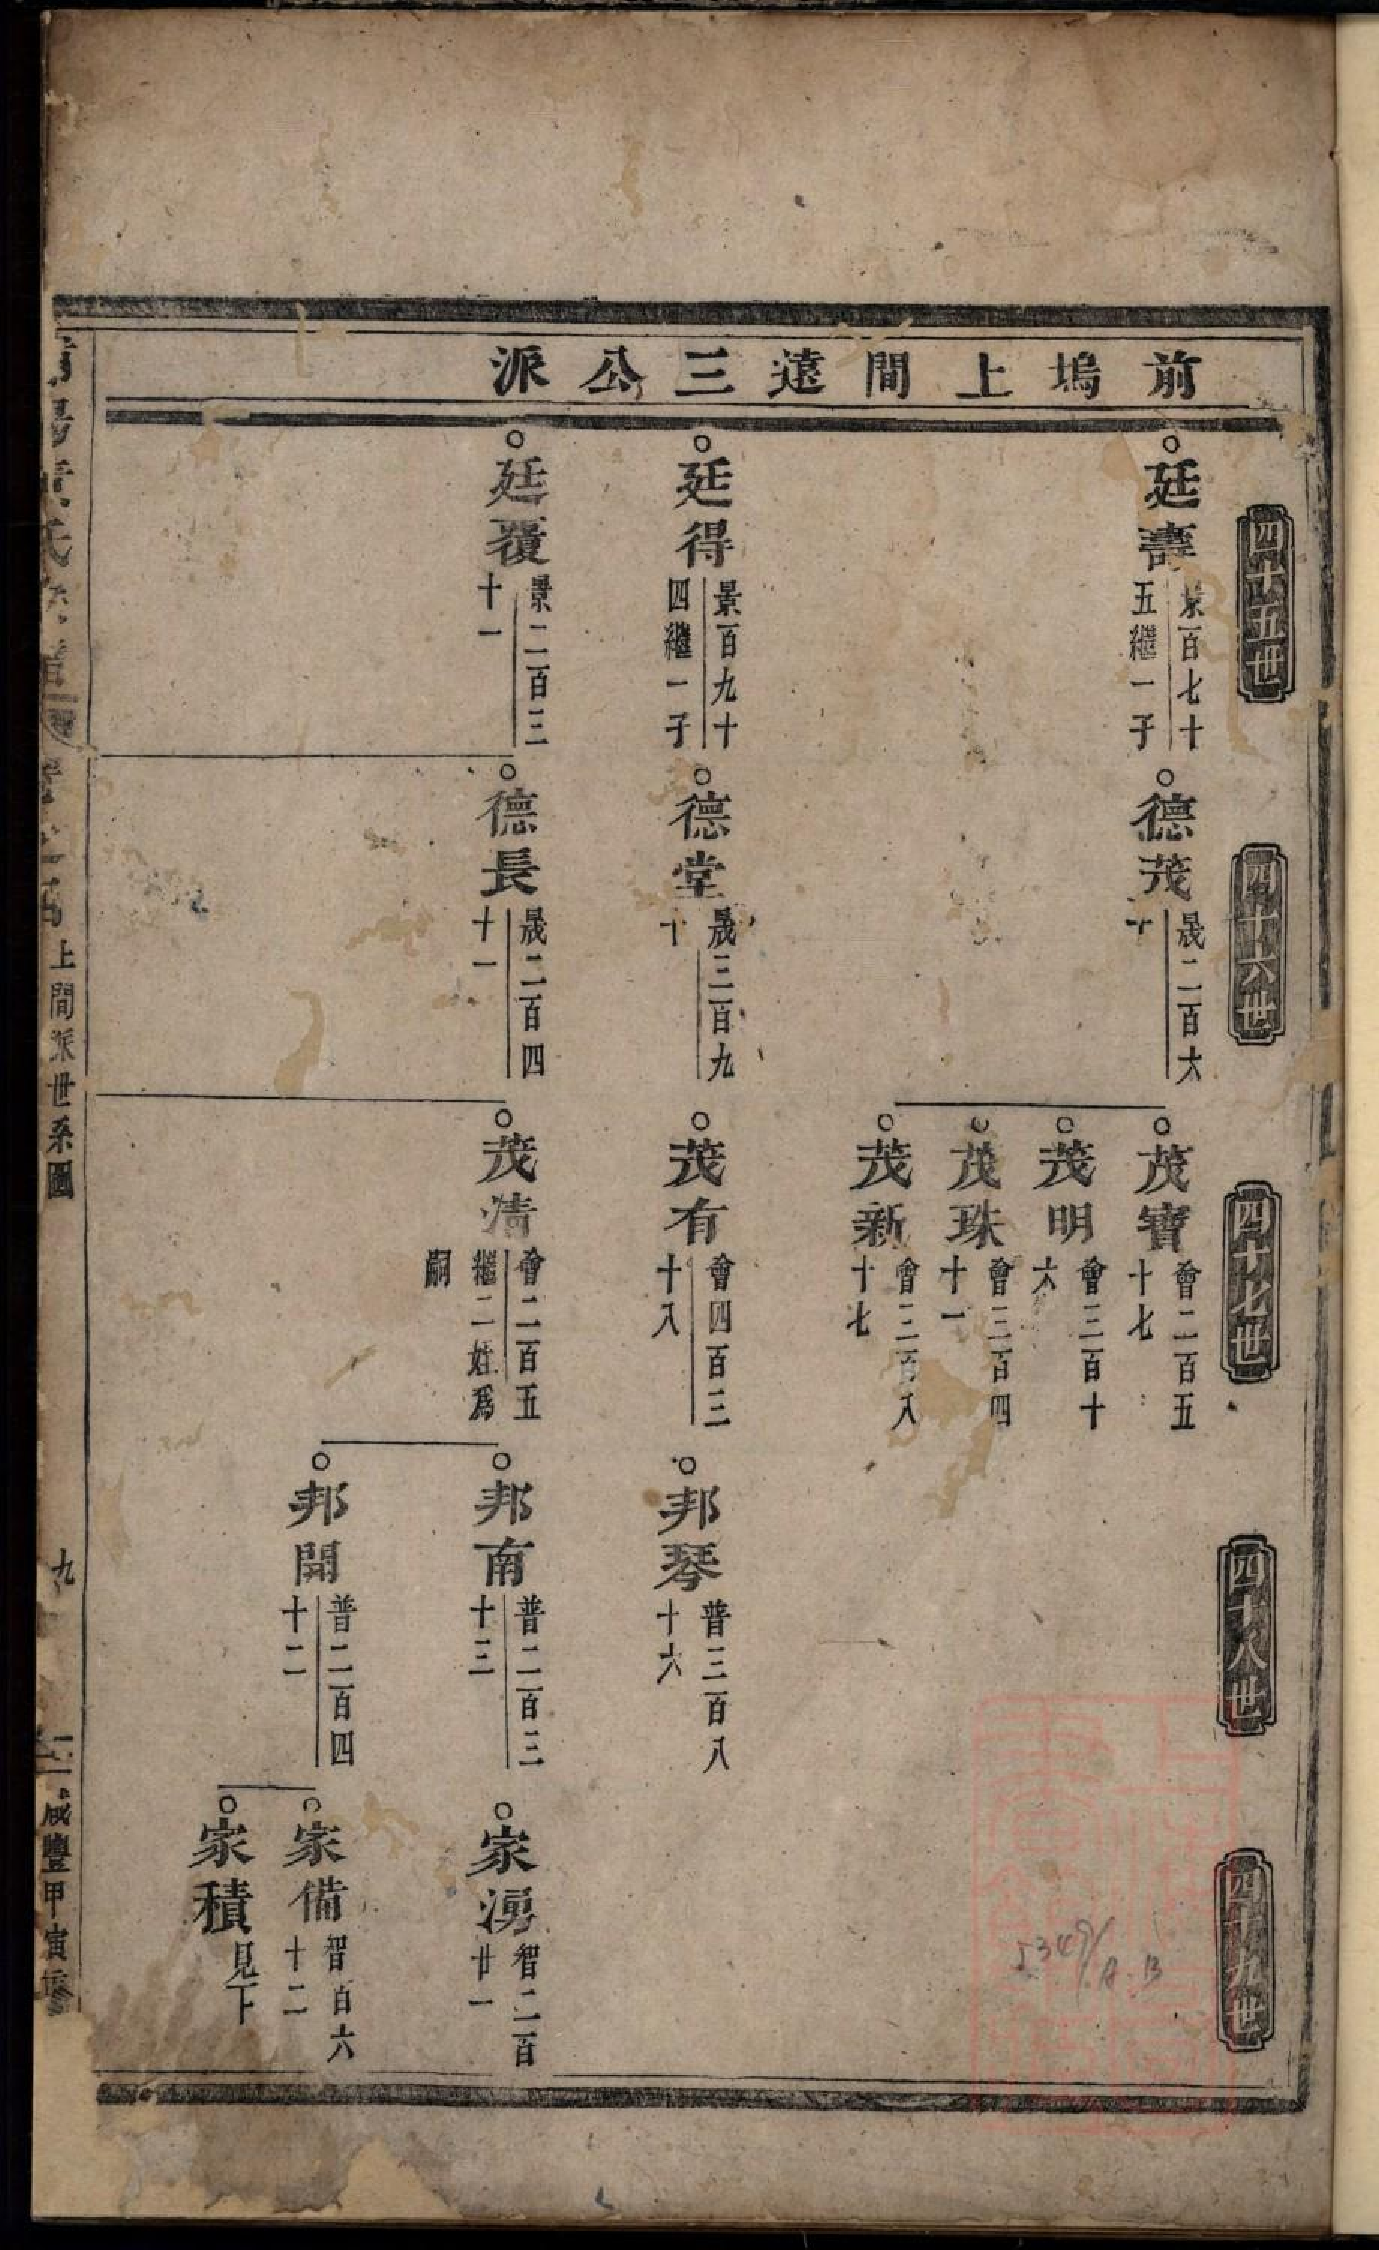 前塢上間遠三公派
四十五世
廷壽
景百七十
五繼一子
廷得
景百九十
四繼一子
廷覆
景二百三
十一
四十六世
德茂
晟二百六
十
德堂
晟三百九
十
德長
晟二百四
十一
四十七世
茂寶
會二百五
十七
茂明
會三百十
六
茂珠
會三百四
十一
茂新
會三百八
十七
茂有
會四百三
十八
茂清
會二百五
繼二姓為
嗣
四十八世
邦琴
普三百八
十六
邦南
普二百三
十三
邦開
普二百四
十二
四十九世
家湧
智二百
廿一
家備
智百六
十二
家積
見下
上間派世系圖
九
咸豐甲寅重
5349/
A.B